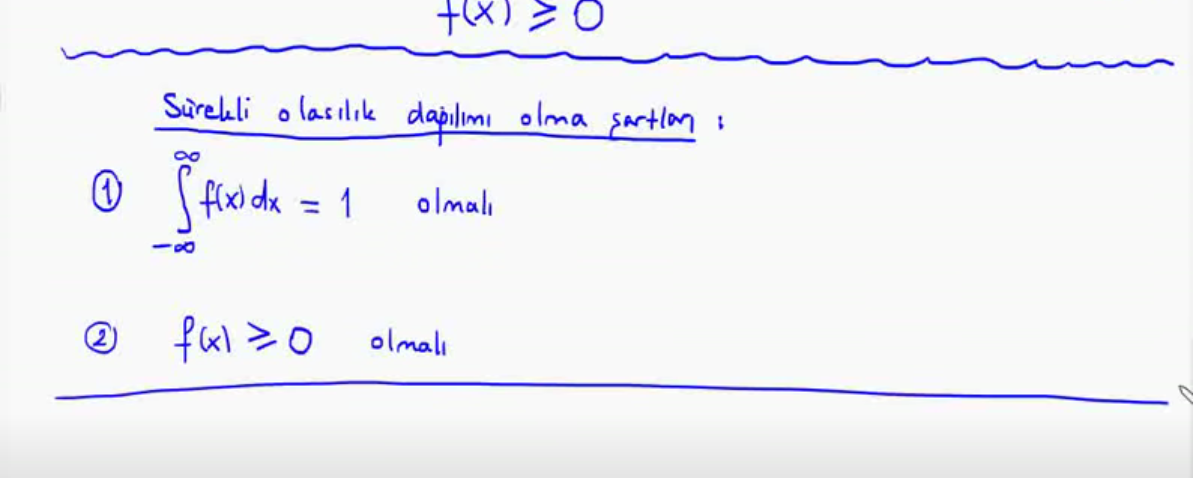 f(x) ≥ 0
Sürekli olasılık dağılımı olma şartları :
① ∫_{-∞}^{∞} f(x) dx = 1 olmalı
② f(x) ≥ 0 olmalı